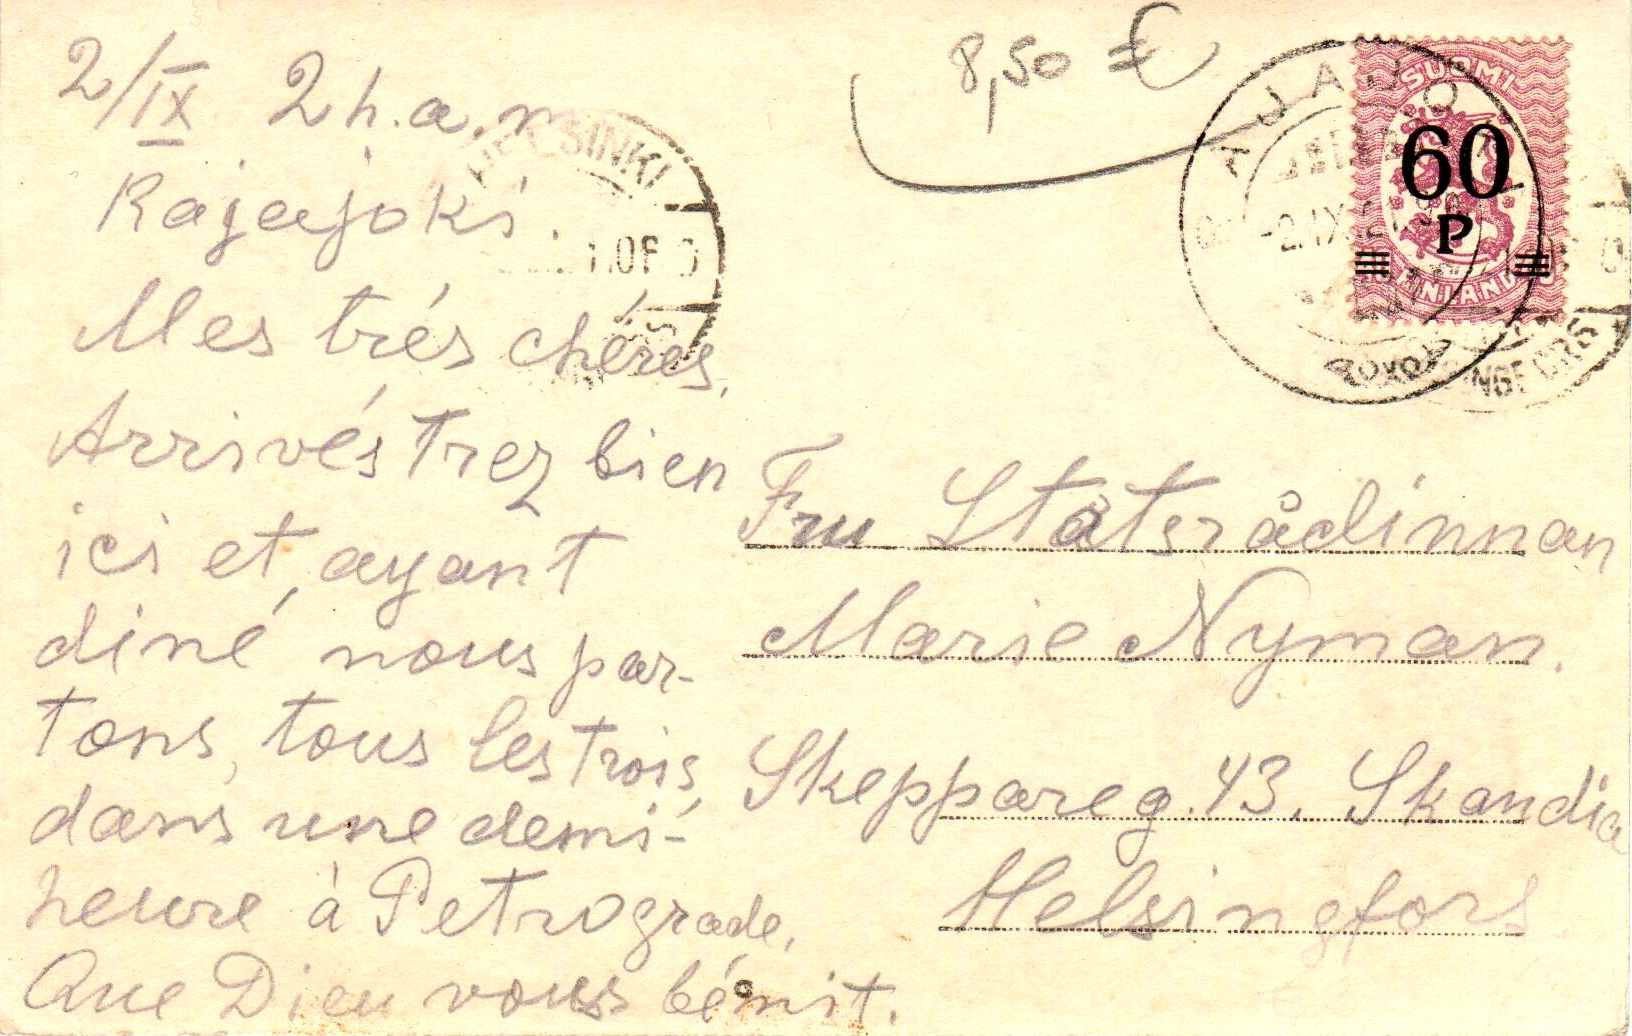 2/IX 2 h. a. m
Rajajoki.
Mes trés chéres,
Arrivés trez bien
ici et, ayant
diné nous par-
tons, tous les trois,
dans une demi-
heure à Petrograde,
Que Dieu vous bénit.
8,50 €
SUOMI
60
P
FINLAND
RAJAJOKI
-2.IX.2
HELSINKI
HELSINGFORS
Fru Statsrådinnan
Marie Nyman.
Skeppareg. 43. Skandia
Helsingfors